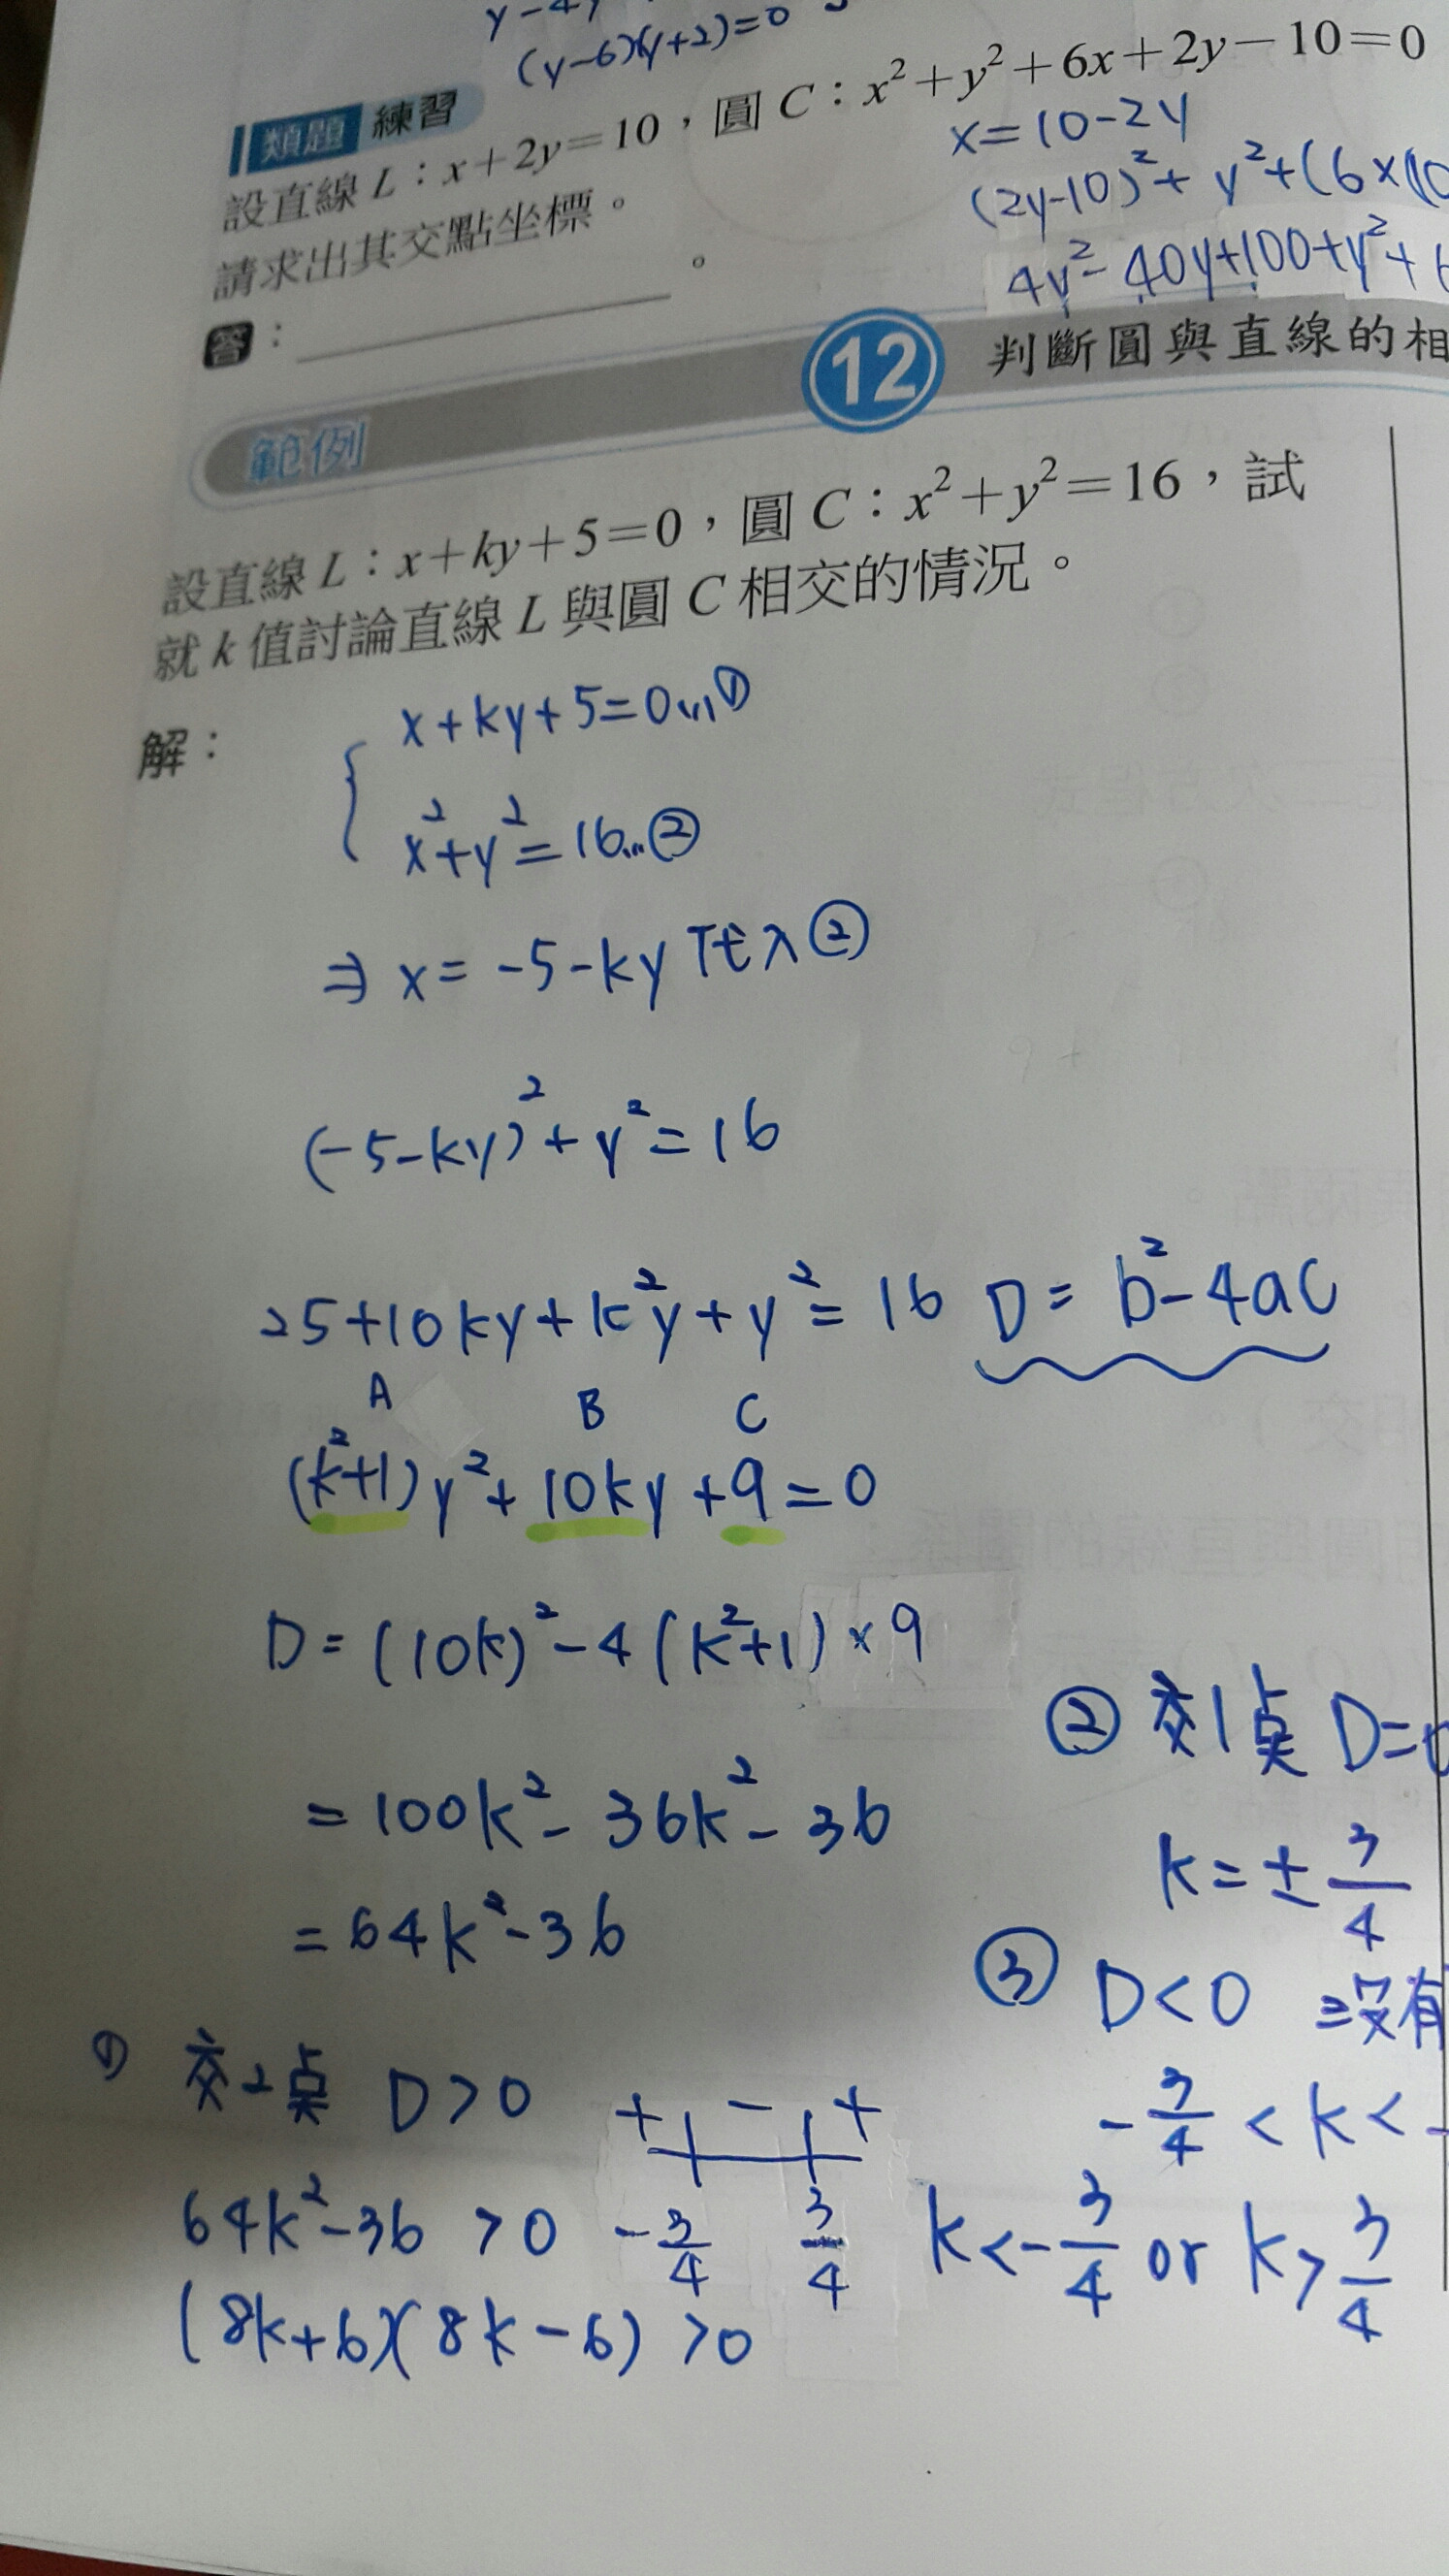 (y-6)(y+2)=0
類題 練習
設直線 L：x+2y=10，圓 C：x²+y²+6x+2y-10=0
請求出其交點坐標。
x=10-2y
(2y-10)²+y²+(6×(10
4y²-40y+100+y²+6
答：＿＿＿＿＿＿。
範例 12 判斷圓與直線的相
設直線 L：x+ky+5=0，圓 C：x²+y²=16，試
就 k 值討論直線 L 與圓 C 相交的情況。
解：
x+ky+5=0...①
x²+y²=16...②
⇒ x=-5-ky 代入②
(-5-ky)²+y²=16
25+10ky+k²y+y²=16 D=b²-4ac
A B C
(k²+1)y²+10ky+9=0
D=(10k)²-4(k²+1)×9
=100k²-36k²-36
=64k²-36
① 交2點 D>0
+ - +
-3/4 3/4
64k²-36>0
(8k+6)(8k-6)>0
k<-3/4 or k>3/4
② 交1點 D=0
k=±3/4
③ D<0 ⇒沒有
-3/4<k<